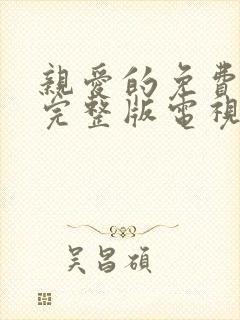 親愛的免費
完整版電視
吳昌碩